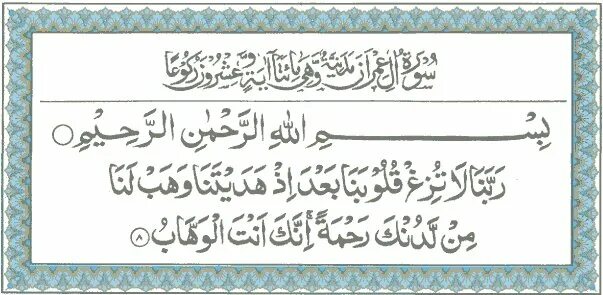 سُوْرَةُ اٰلِ عِمْرَانَ مَدَنِيَّةٌ وَّهِيَ مِائَتَا اٰيَةٍ وَّعِشْرُوْنَ رُكُوْعًا
بِسْمِ اللّٰهِ الرَّحْمٰنِ الرَّحِيْمِ ○
رَبَّنَا لَا تُزِغْ قُلُوْبَنَا بَعْدَ اِذْ هَدَيْتَنَا وَهَبْ لَنَا
مِنْ لَّدُنْكَ رَحْمَةً ۚ اِنَّكَ اَنْتَ الْوَهَّابُ ۸